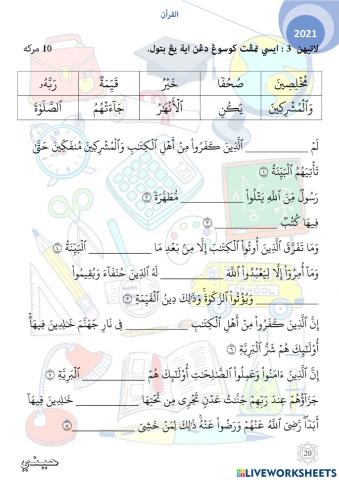 القرآن
2021
لاتيهن 3 : ايسي تمڤت كوسوڠ دڠن اية يڠ بتول.
10 مركه
مُخْلِصِينَ صُحُفًا خَيْرُ قَيِّمَةٌ رَبَّهُۥ
وَٱلْمُشْرِكِينَ يَكُنِ ٱلْأَنْهَٰرُ جَآءَتْهُمُ ٱلصَّلَوٰةَ
لَمْ ________ ٱلَّذِينَ كَفَرُوا۟ مِنْ أَهْلِ ٱلْكِتَٰبِ وَٱلْمُشْرِكِينَ مُنفَكِّينَ حَتَّىٰ
تَأْتِيَهُمُ ٱلْبَيِّنَةُ ۝١
رَسُولٌ مِّنَ ٱللَّهِ يَتْلُوا۟ ________ مُّطَهَّرَةً ۝٢
فِيهَا كُتُبٌ ________ ۝٣
وَمَا تَفَرَّقَ ٱلَّذِينَ أُوتُوا۟ ٱلْكِتَٰبَ إِلَّا مِنۢ بَعْدِ مَا ________ ٱلْبَيِّنَةُ ۝٤
وَمَآ أُمِرُوٓا۟ إِلَّا لِيَعْبُدُوا۟ ٱللَّهَ ________ لَهُ ٱلدِّينَ حُنَفَآءَ وَيُقِيمُوا۟
________ وَيُؤْتُوا۟ ٱلزَّكَوٰةَ ۚ وَذَٰلِكَ دِينُ ٱلْقَيِّمَةِ ۝٥
إِنَّ ٱلَّذِينَ كَفَرُوا۟ مِنْ أَهْلِ ٱلْكِتَٰبِ ________ فِى نَارِ جَهَنَّمَ خَٰلِدِينَ فِيهَآ ۚ
أُو۟لَٰٓئِكَ هُمْ شَرُّ ٱلْبَرِيَّةِ ۝٦
إِنَّ ٱلَّذِينَ ءَامَنُوا۟ وَعَمِلُوا۟ ٱلصَّٰلِحَٰتِ أُو۟لَٰٓئِكَ هُمْ ________ ٱلْبَرِيَّةِ ۝٧
جَزَآؤُهُمْ عِندَ رَبِّهِمْ جَنَّٰتُ عَدْنٍ تَجْرِى مِن تَحْتِهَا ________ خَٰلِدِينَ فِيهَآ
أَبَدًا ۖ رَّضِىَ ٱللَّهُ عَنْهُمْ وَرَضُوا۟ عَنْهُ ۚ ذَٰلِكَ لِمَنْ خَشِىَ ________ ۝٨
20
LIVEWORKSHEETS